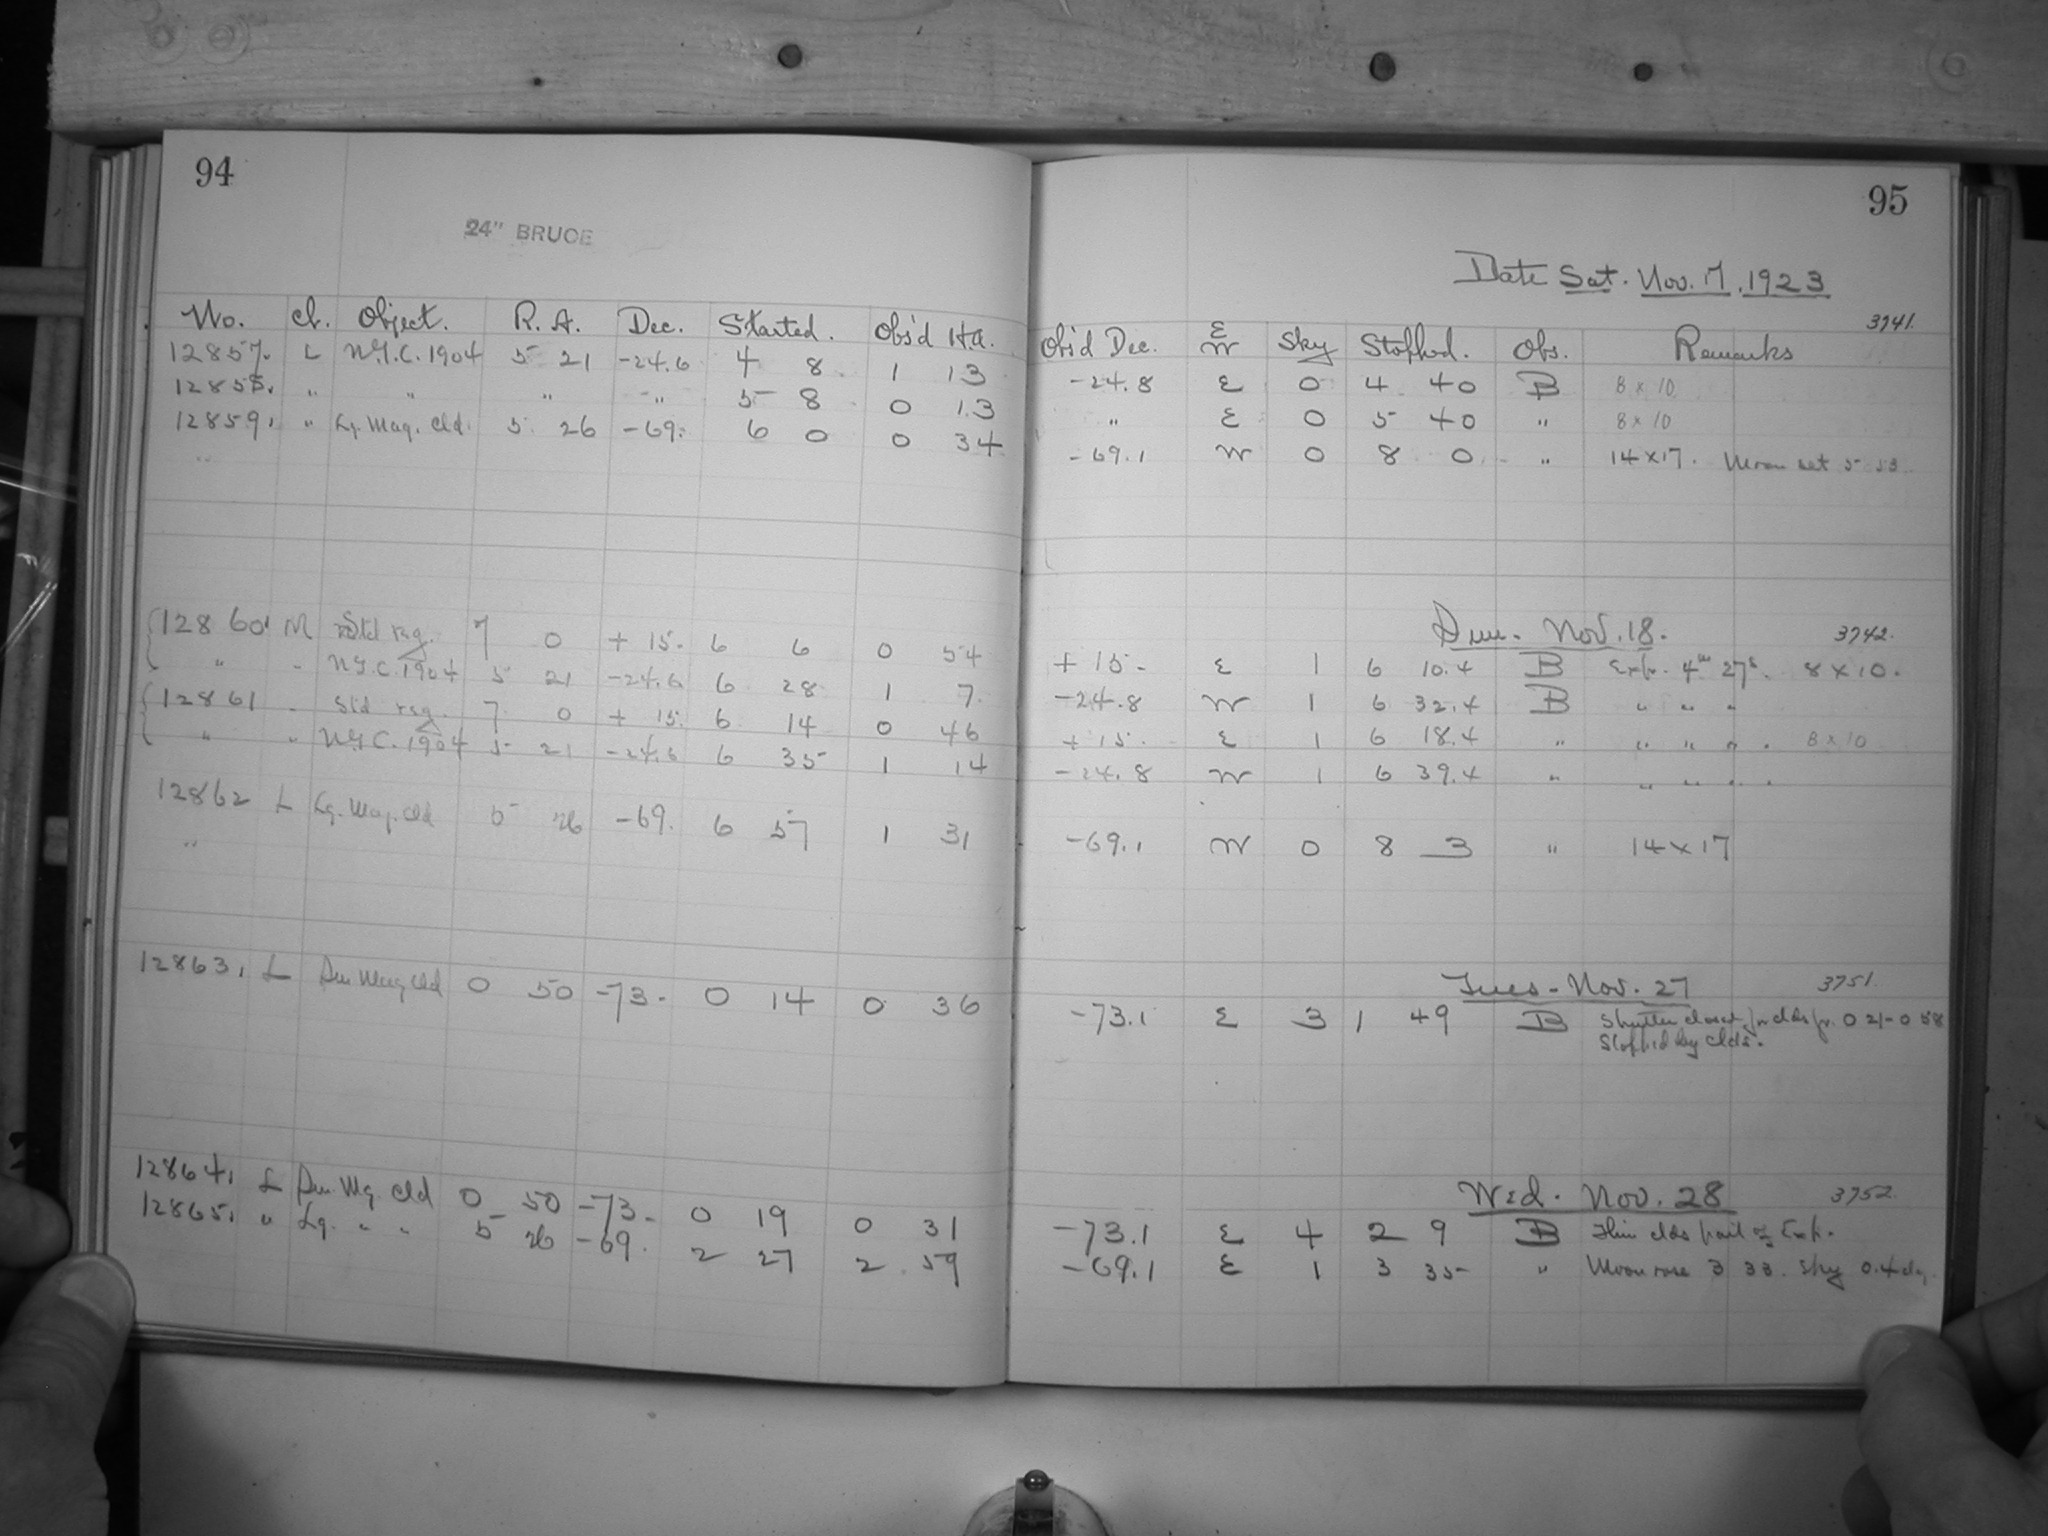 94
24" BRUCE
No. Cl. Object. R. A. Dec. Started. Obs'd H.A.
12857. L N.G.C. 1904 5 21 -24.6 4 8 1 13
12858. " " " -" 5 8 0 13
12859. " Lg. Mag. Cld. 5 26 -69. 6 0 0 34
"
12860 M Std reg. 7 0 + 15. 6 6 0 54
" " N.G.C. 1904 5 21 -24.6 6 28 1 7.
12861 " Std reg. 7 0 + 15. 6 14 0 46
" " N.G.C. 1904 5 21 -24.6 6 35 1 14
12862 L Lg. Mag. Cld 5 26 -69. 6 57 1 31
"
12863. L Sm Mag Cld 0 50 -73. 0 14 0 36
12864. L Sm. Mg. Cld 0 50 -73. 0 19 0 31
12865. " Lg. " " 5 26 -69. 2 27 2 59
95
Date Sat. Nov. 17. 1923
3741.
Obs'd Dec. E W Sky Stopped. Obs. Remarks
-24.8 E 0 4 40 B 8 x 10
" E 0 5 40 " 8 x 10
-69.1 W 0 8 0 " 14x17. Moon set 5 53
Sun. Nov. 18. 3742.
+ 15. E 1 6 10.4 B Exp. 4m 27s. 8 x 10.
-24.8 W 1 6 32.4 B " " "
+ 15. E 1 6 18.4 " " " " . 8 x 10
-24.8 W 1 6 39.4 " " " " .
-69.1 W 0 8 3 " 14 x 17
Tues. Nov. 27 3751.
-73.1 E 3 1 49 B Shutter closed for clds fr. 0 21-0 58
Stopped by clds.
Wed. Nov. 28 3752.
-73.1 E 4 2 9 B Thin clds part of Exp.
-69.1 E 1 3 35 " Moon rose 3 33. Sky 0.4